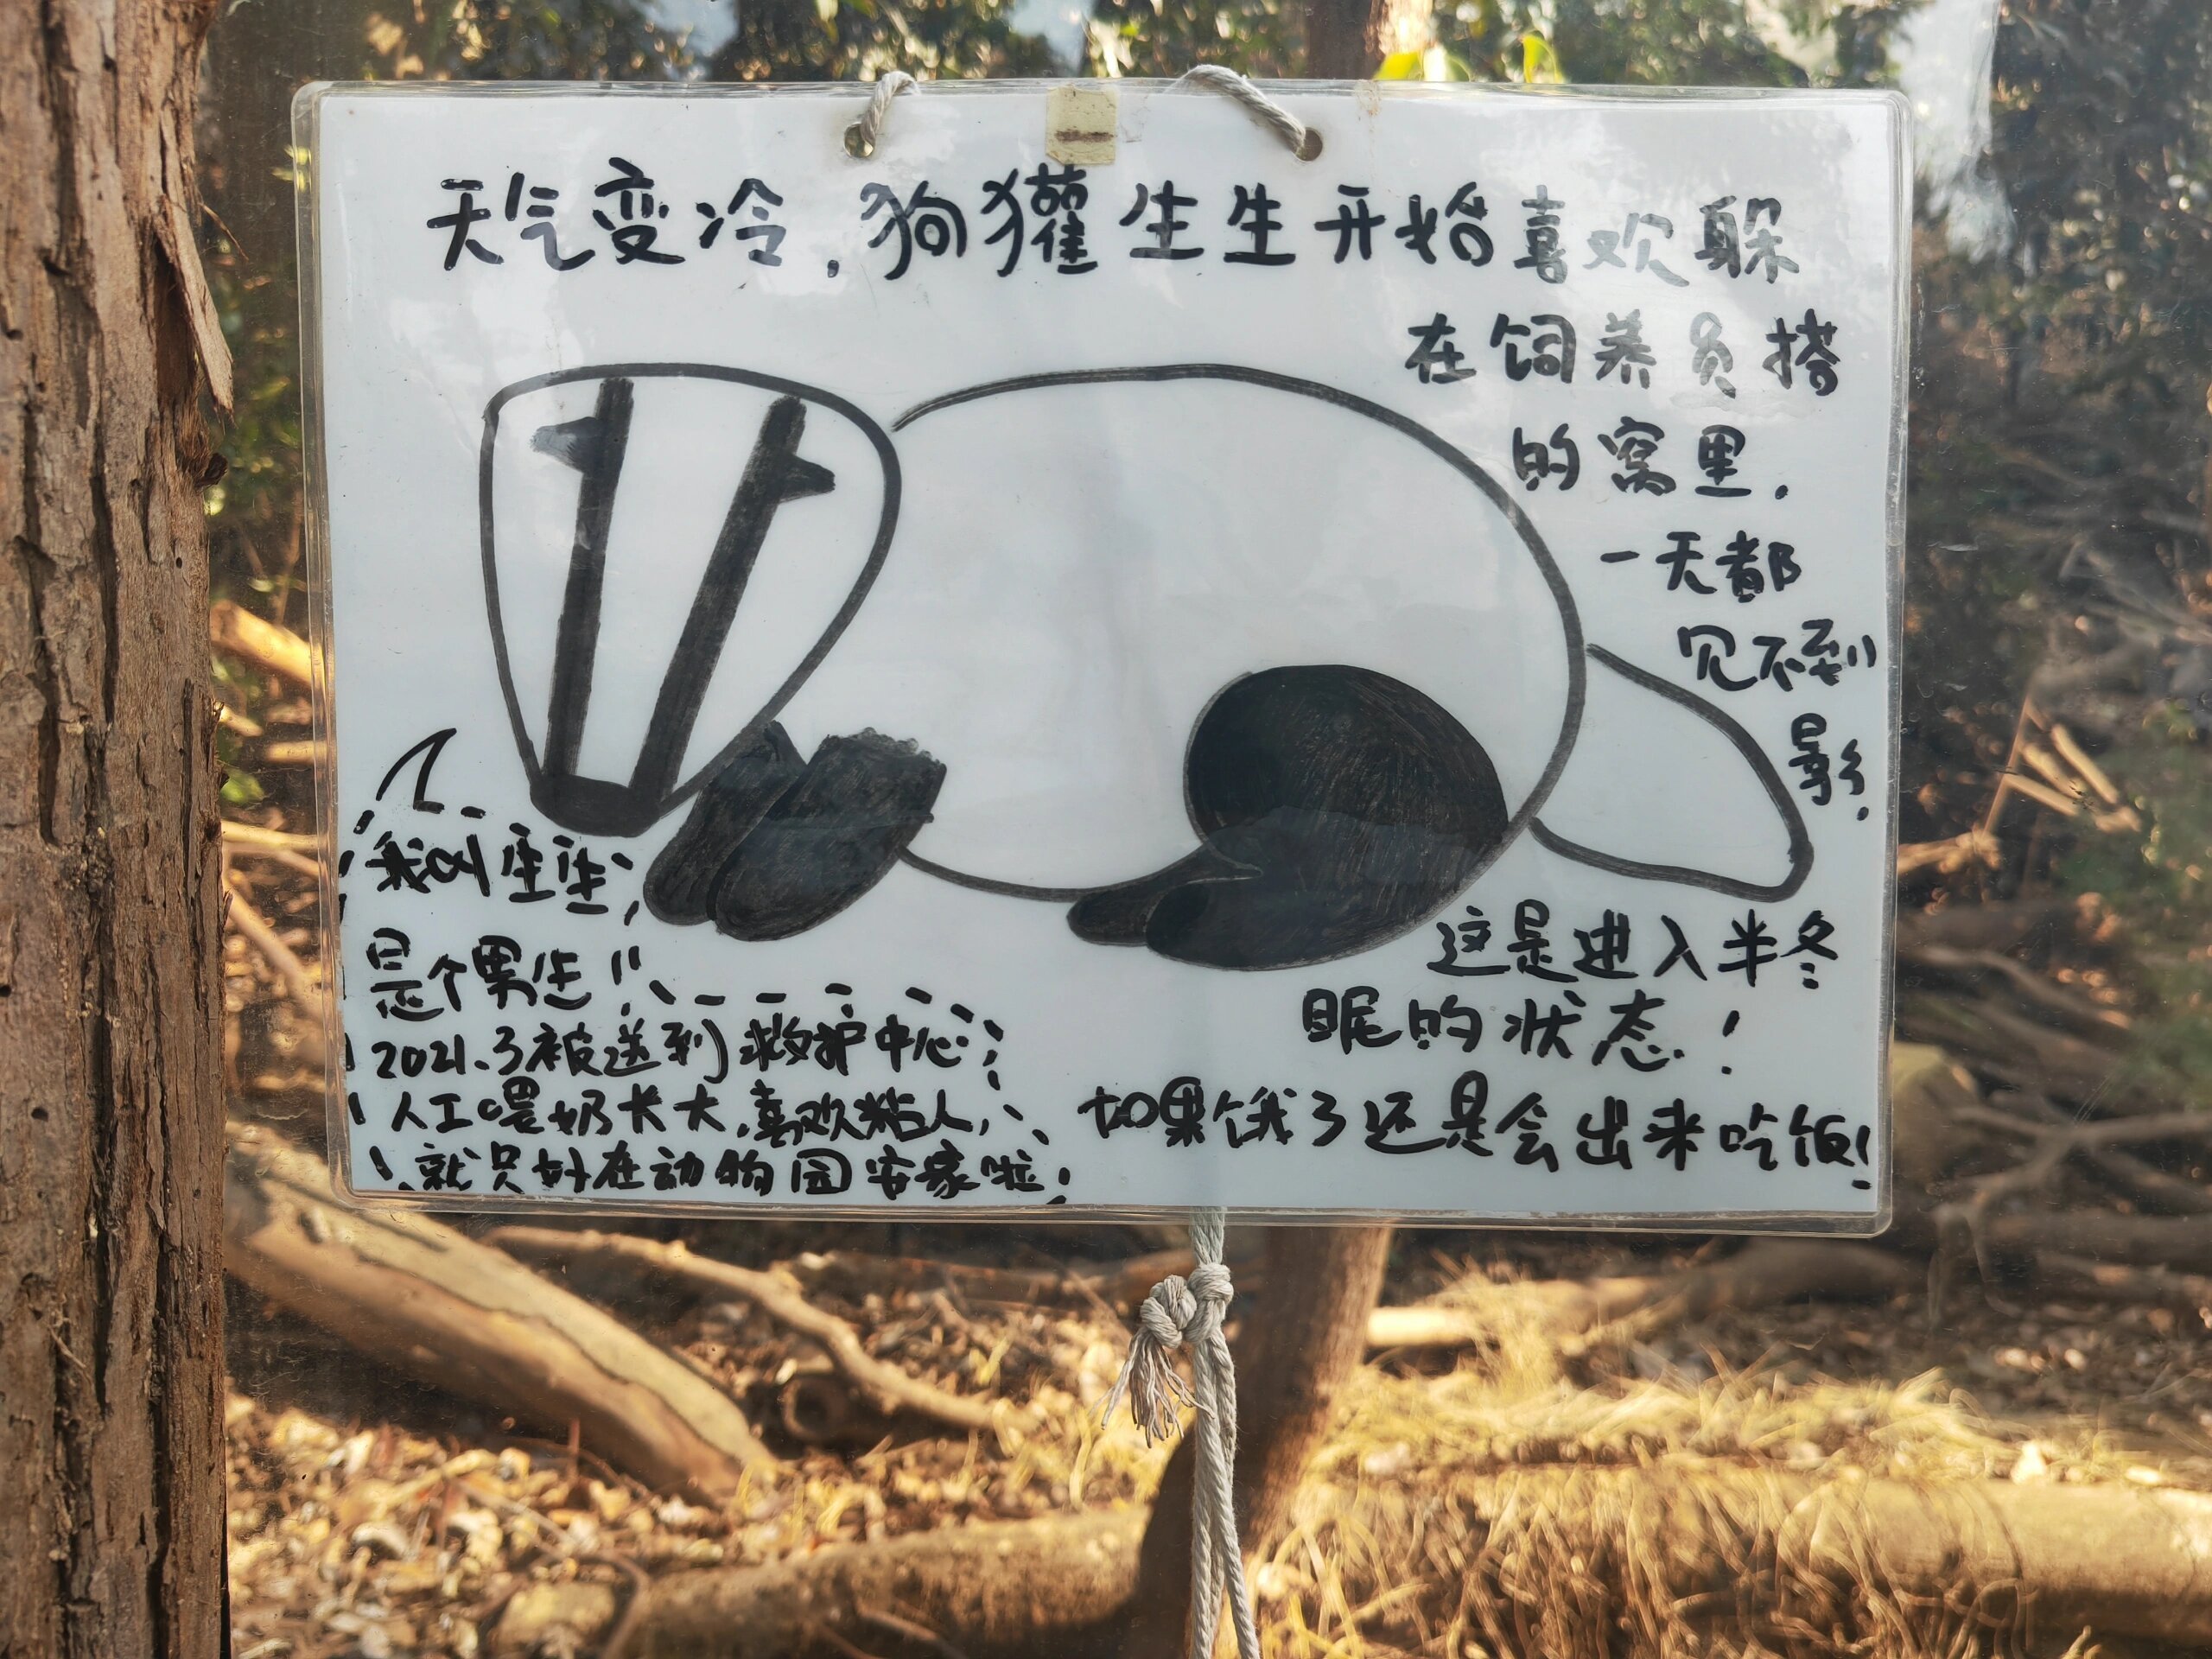 天气变冷，狗獾生生开始喜欢躲
在饲养员搭
的窝里，
一天都
见不到
影，
这是进入半冬
眠的状态！
如果饿了还是会出来吃饭！
我叫生生，
是个男生！！
2021.3被送到救护中心，
人工喂奶长大，喜欢粘人，
就只好在动物园安家啦！